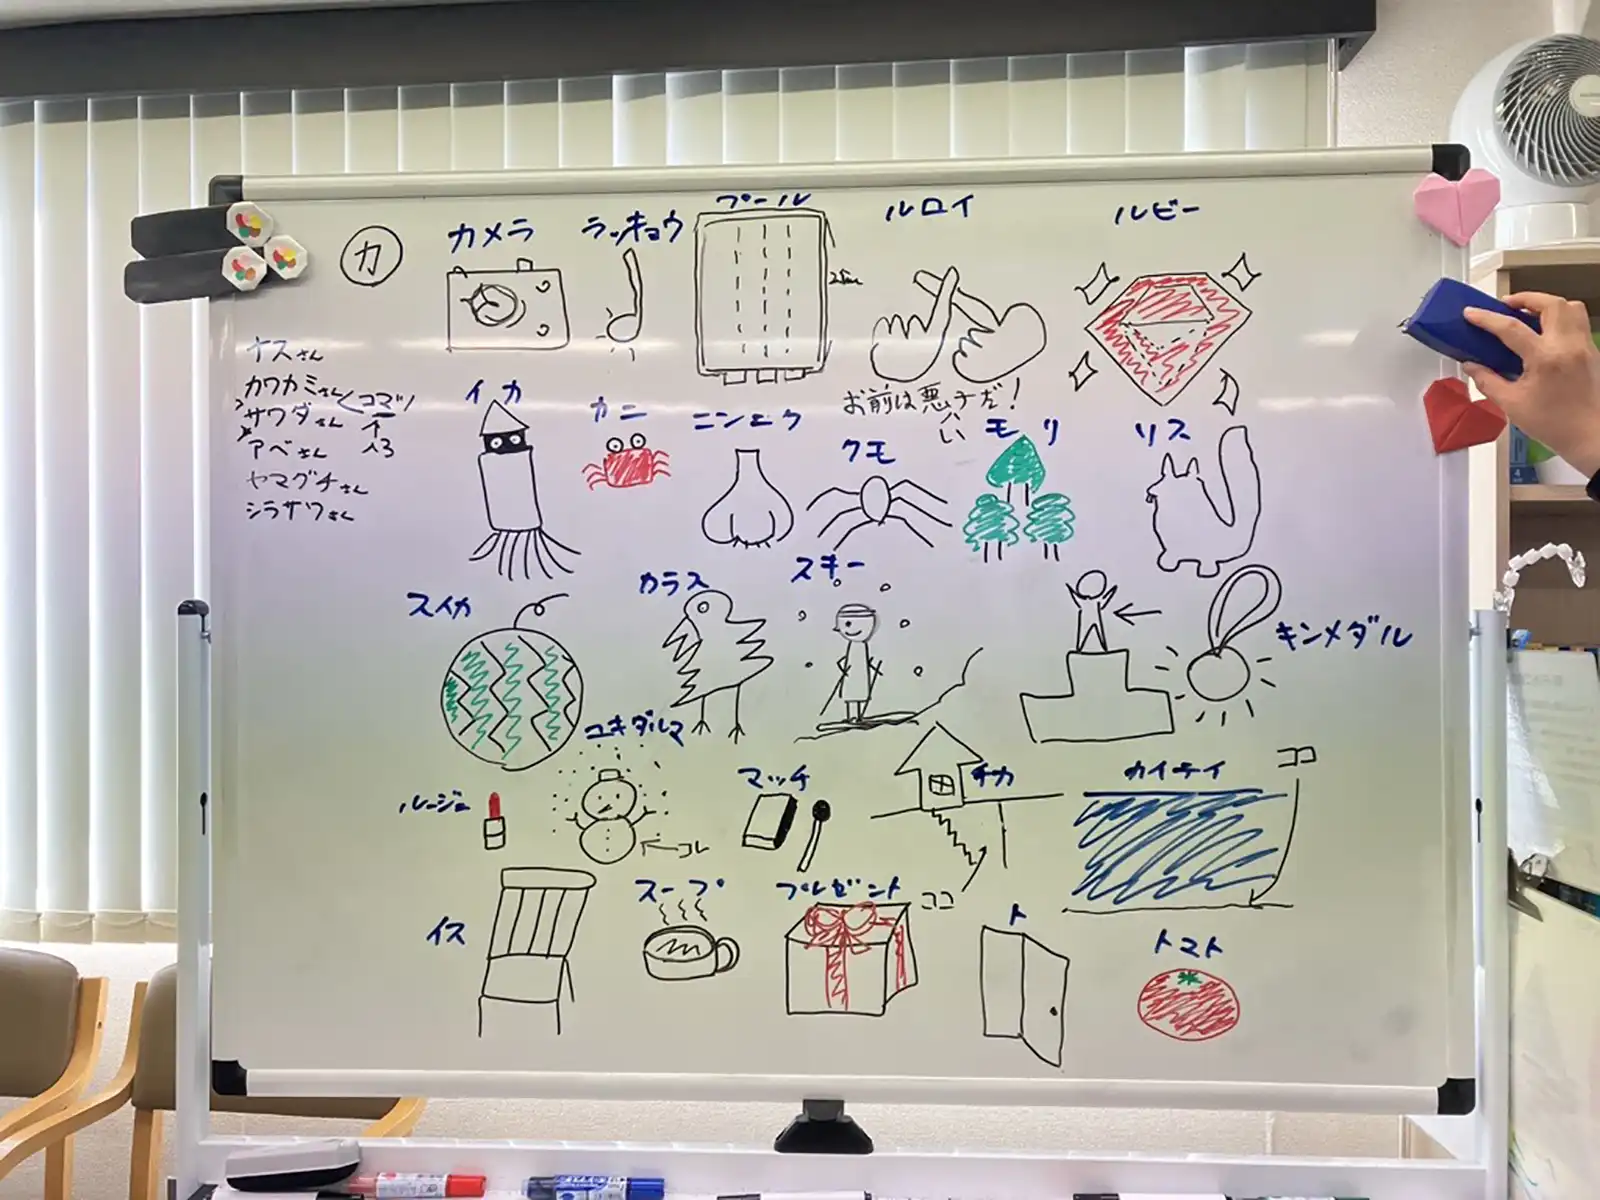 カ
カメラ
ラッキョウ
プール
ルロイ
ルビー
お前は悪い子だ!
ナスさん
カワカミさん
コマツ
サワダさん
アベさん
ヤマグチさん
シラサワさん
イカ
カニ
ニンニク
クモ
モリ
リス
スイカ
カラス
スキー
キンメダル
ルージュ
ユキダルマ
コレ
マッチ
チカ
ココ
カイテイ
ココ
イス
スープ
プレゼント
ト
トマト